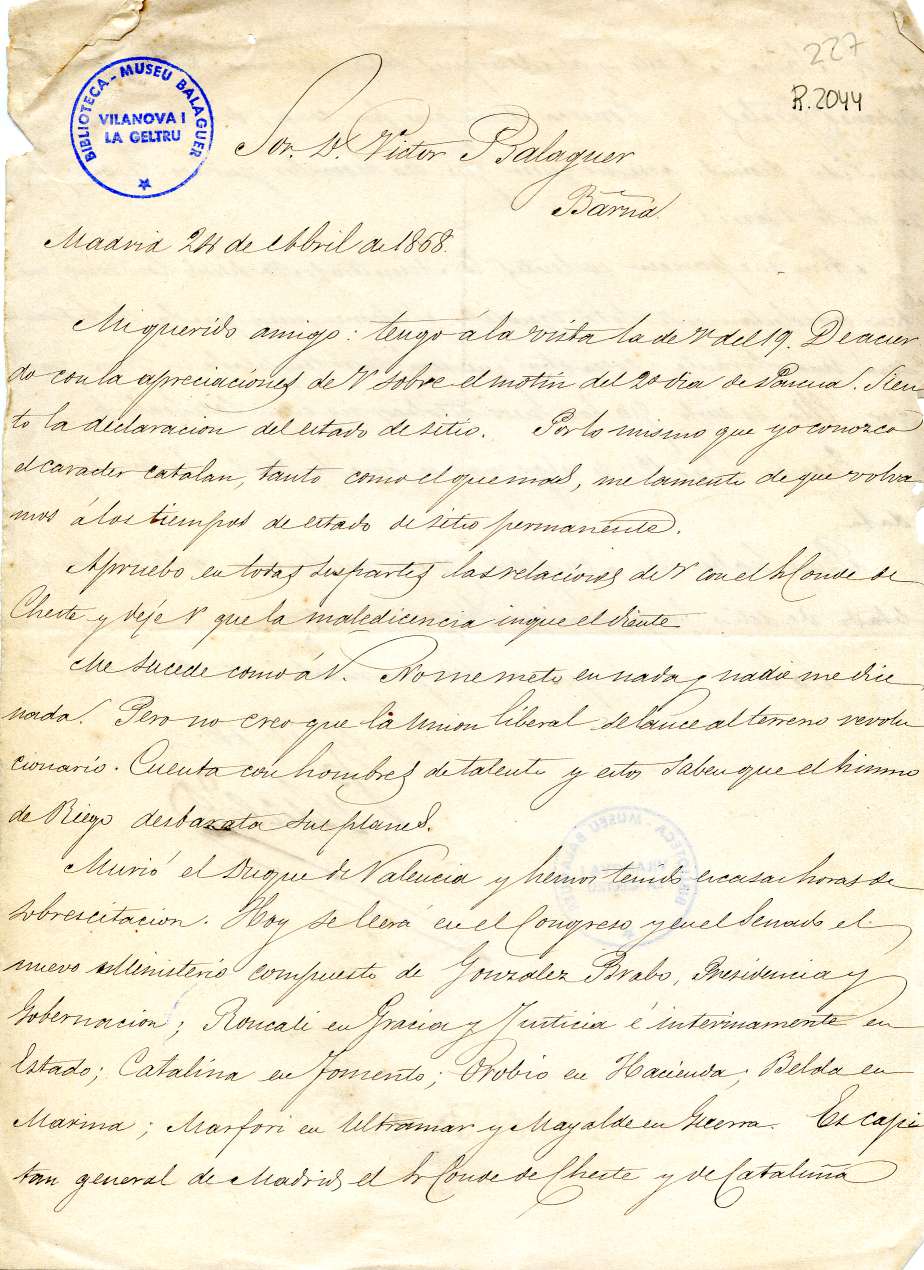 227
R.2044
BIBLIOTECA - MUSEU BALAGUER
VILANOVA I
LA GELTRU
Sor. D. Victor Balaguer
Barna.
Madrid 24 de Abril de 1868.
Mi querido amigo: tengo á la vista la de V del 19. De acuer
do con la apreciaciones de V sobre el motin del 2º dia de Pascua. Sien
to la declaracion del estado de sitio. Por lo mismo que yo conozco
el caracter catalan, tanto como el que mas, me lamento de que volva
mos á los tiempos de estado de sitio permanente.
Apruebo en todas sus partes las relaciones de V con el Sr Conde de
Cheste y deje V que la maledicencia inque el diente
Me sucede como á V. No me meto en nada y nadie me dice
nada. Pero no creo que la union liberal se lance al terreno revolu
cionario. Cuenta con hombres de talento y estos saben que el himno
de Riego desbarata sus planes.
Murió el Duque de Valencia y hemos tenido escasas horas de
sobrescitacion. Hoy se leerá en el Congreso y en el Senado el
nuevo Ministerio compuesto de Gonzalez Brabo, Presidencia y
Gobernacion; Roncali en Gracia y Justicia é interinamente en
Estado; Catalina en Fomento; Orobio en Hacienda; Belda en
Marina; Marfori en Ultramar y Mayalde en Guerra. Es capi
tan general de Madrid el Sr Conde de Cheste y de Cataluña